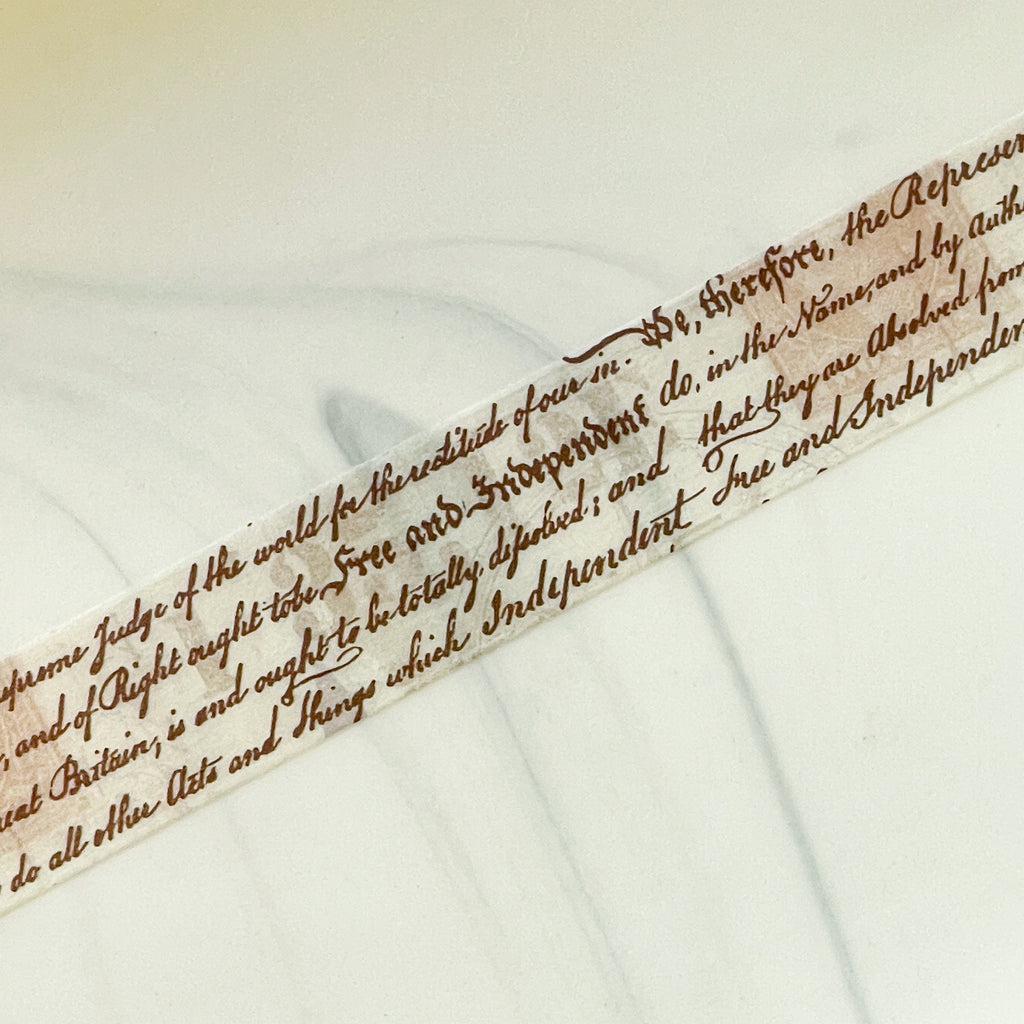 upreme Judge of the world for the rectitude of our in. We, therefore, the Represen
, and of Right ought to be Free and Independent do, in the Name, and by Auth
reat Britain, is and ought to be totally diſsolved; and that they are Absolved from
do all other Acts and Things which Independent Free and Independen